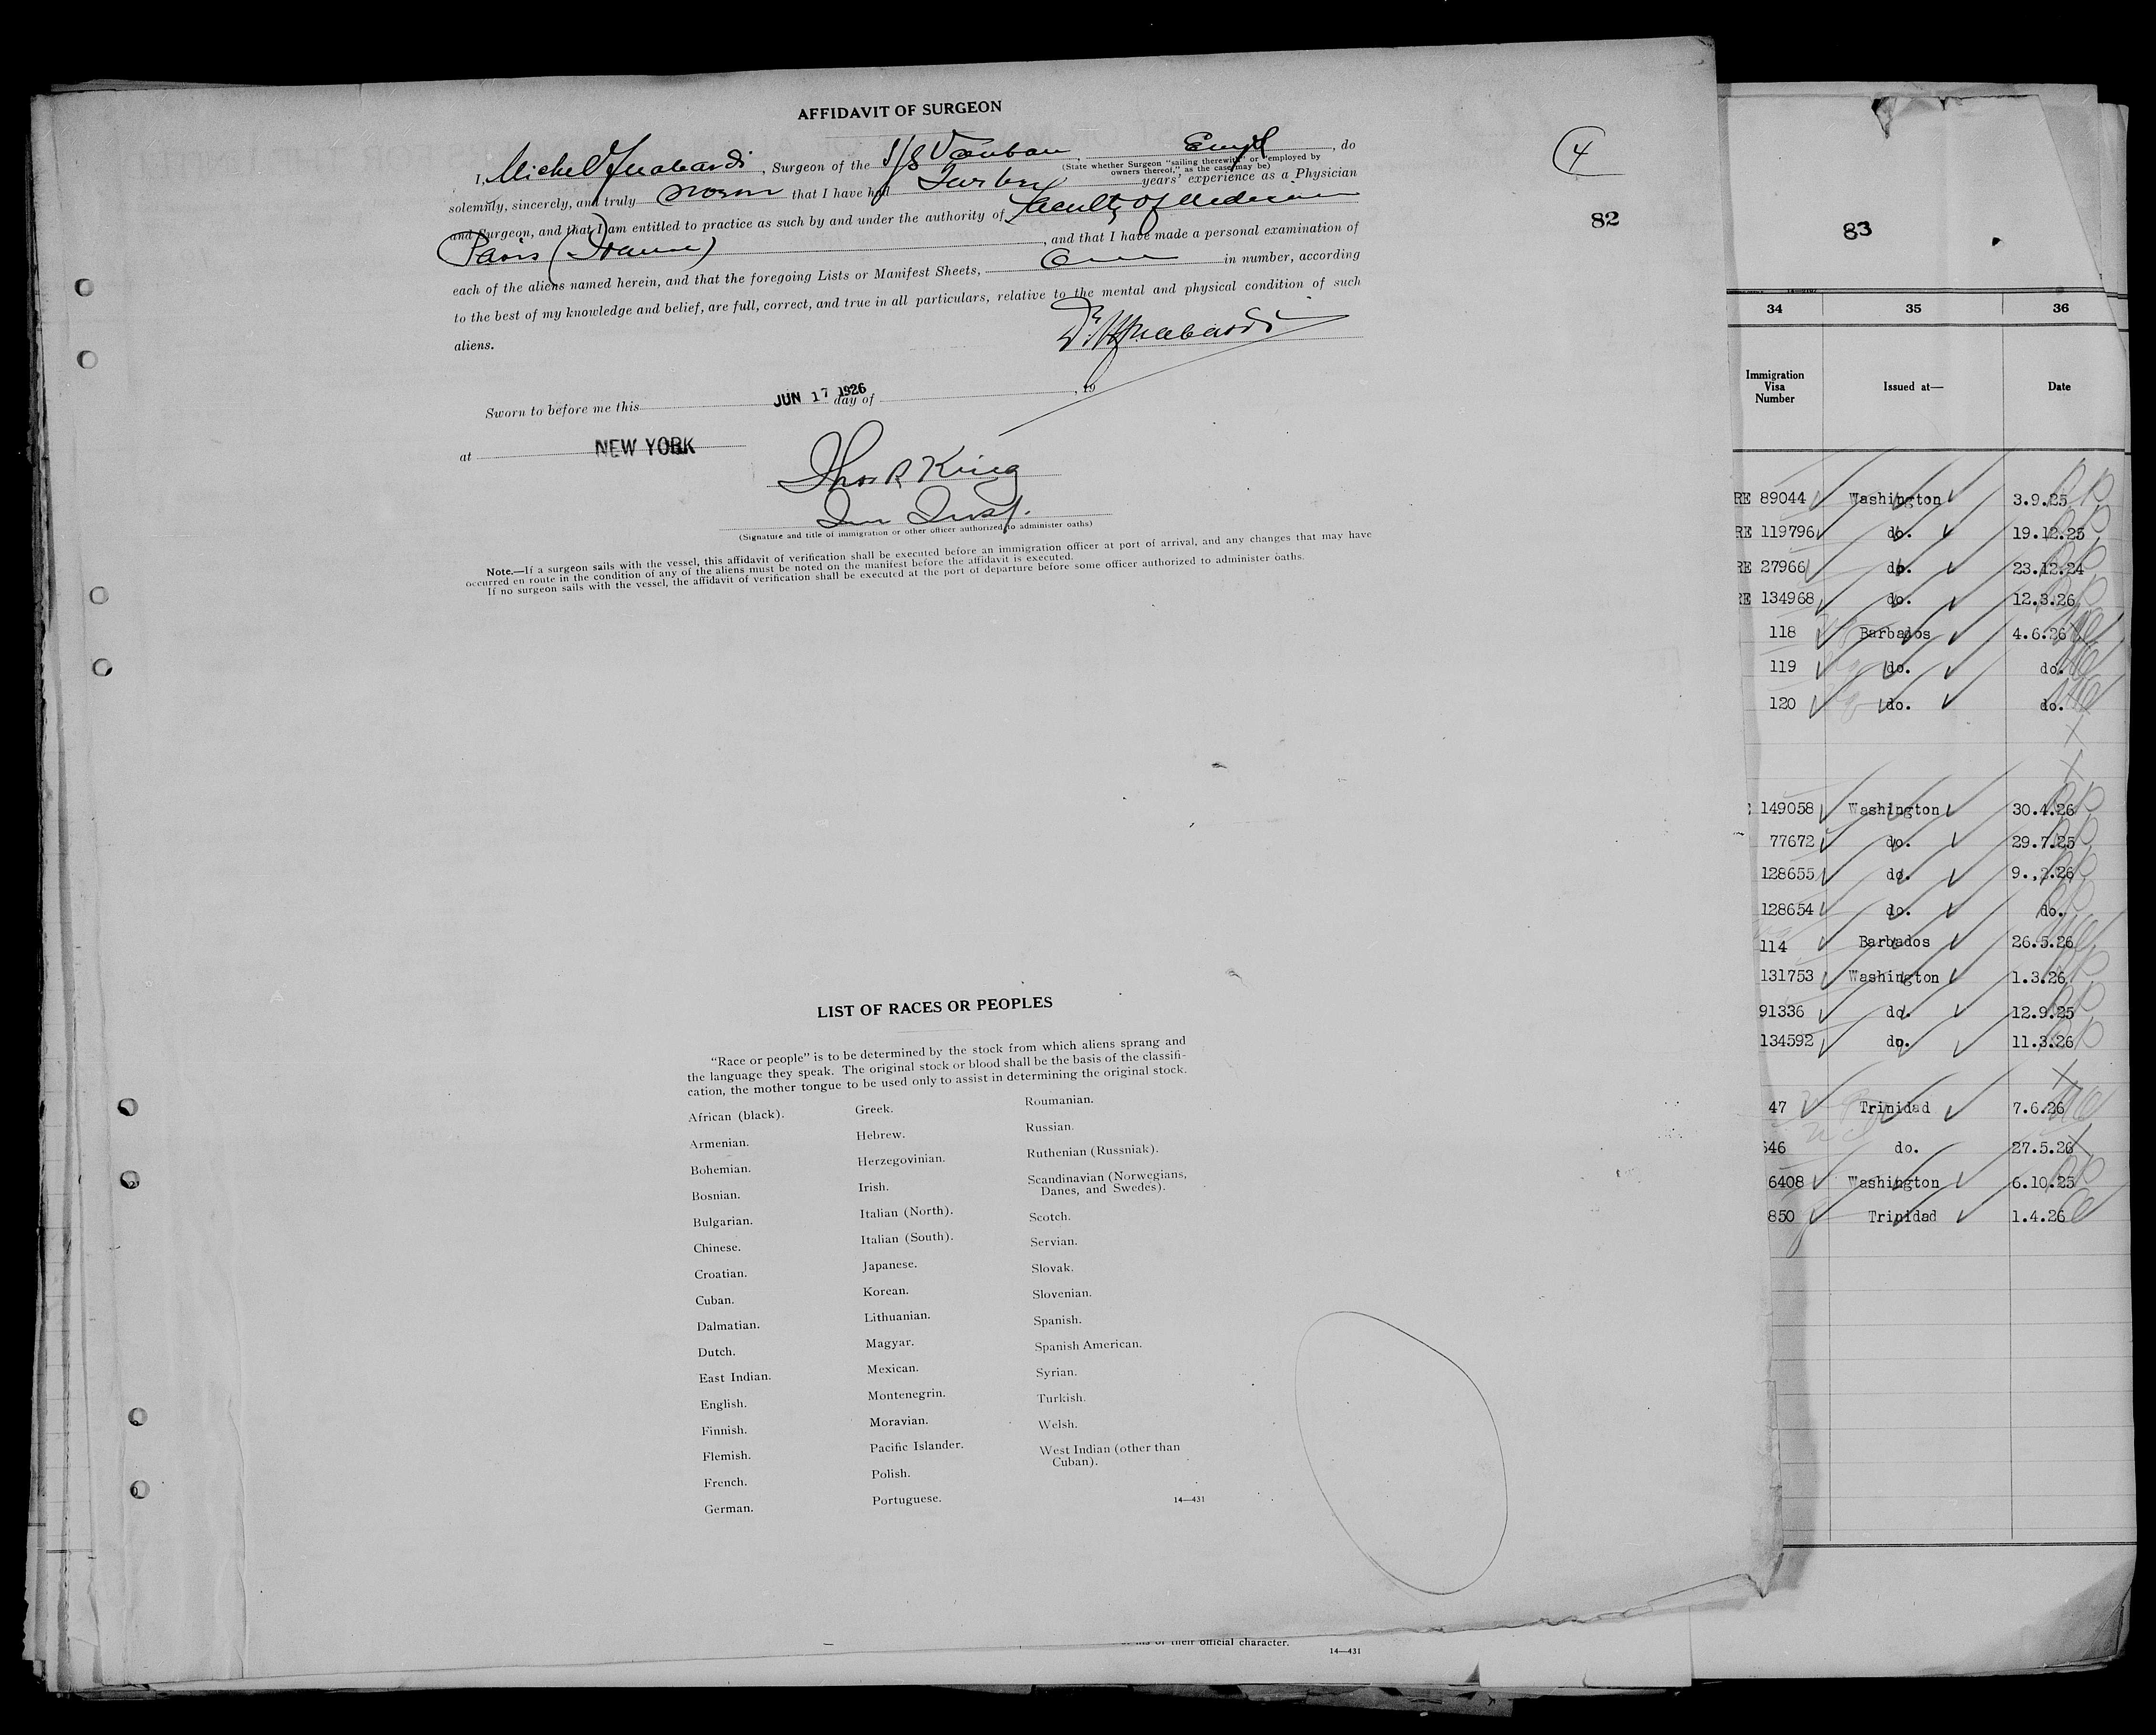 AFFIDAVIT OF SURGEON
I, Michel, Surgeon of the S/S Vauban, Empd, do
(State whether Surgeon "sailing therewith" or "employed by
owners thereof," as the case may be)
solemnly, sincerely, and truly that I have had years' experience as a Physician
and Surgeon, and that I am entitled to practice as such by and under the authority of Faculty of Medicine
Paris (France), and that I have made a personal examination of
each of the aliens named herein, and that the foregoing Lists or Manifest Sheets, One in number, according
to the best of my knowledge and belief, are full, correct, and true in all particulars, relative to the mental and physical condition of such
aliens.
Sworn to before me this JUN 17 1926 day of , 19
at NEW YORK
Thos R King
Imm Insp.
(Signature and title of immigration or other officer authorized to administer oaths)
Note.—If a surgeon sails with the vessel, this affidavit of verification shall be executed before an immigration officer at port of arrival, and any changes that may have
occurred en route in the condition of any of the aliens must be noted on the manifest before the affidavit is executed.
If no surgeon sails with the vessel, the affidavit of verification shall be executed at the port of departure before some officer authorized to administer oaths.
4
82
LIST OF RACES OR PEOPLES
"Race or people" is to be determined by the stock from which aliens sprang and
the language they speak. The original stock or blood shall be the basis of the classifi-
cation, the mother tongue to be used only to assist in determining the original stock.
African (black).
Armenian.
Bohemian.
Bosnian.
Bulgarian.
Chinese.
Croatian.
Cuban.
Dalmatian.
Dutch.
East Indian.
English.
Finnish.
Flemish.
French.
German.
Greek.
Hebrew.
Herzegovinian.
Irish.
Italian (North).
Italian (South).
Japanese.
Korean.
Lithuanian.
Magyar.
Mexican.
Montenegrin.
Moravian.
Pacific Islander.
Polish.
Portuguese.
Roumanian.
Russian.
Ruthenian (Russniak).
Scandinavian (Norwegians,
Danes, and Swedes).
Scotch.
Servian.
Slovak.
Slovenian.
Spanish.
Spanish American.
Syrian.
Turkish.
Welsh.
West Indian (other than
Cuban).
14—431
of their official character.
14—431
83
34 35 36
Immigration
Visa
Number
Issued at—
Date
RE 89044 Washington 3.9.25
RE 119796 do. 19.12.25
RE 27966 do. 23.12.24
RE 134968 do. 12.3.26
118 Barbados 4.6.26
119 do. do.
120 do. do.
149058 Washington 30.4.26
77672 do. 29.7.25
128655 do. 9.,2.26
128654 do. do.
114 Barbados 26.5.26
131753 Washington 1.3.26
91336 do. 12.9.25
134592 do. 11.3.26
47 Trinidad 7.6.26
646 do. 27.5.26
6408 Washington 6.10.25
850 Trinidad 1.4.26